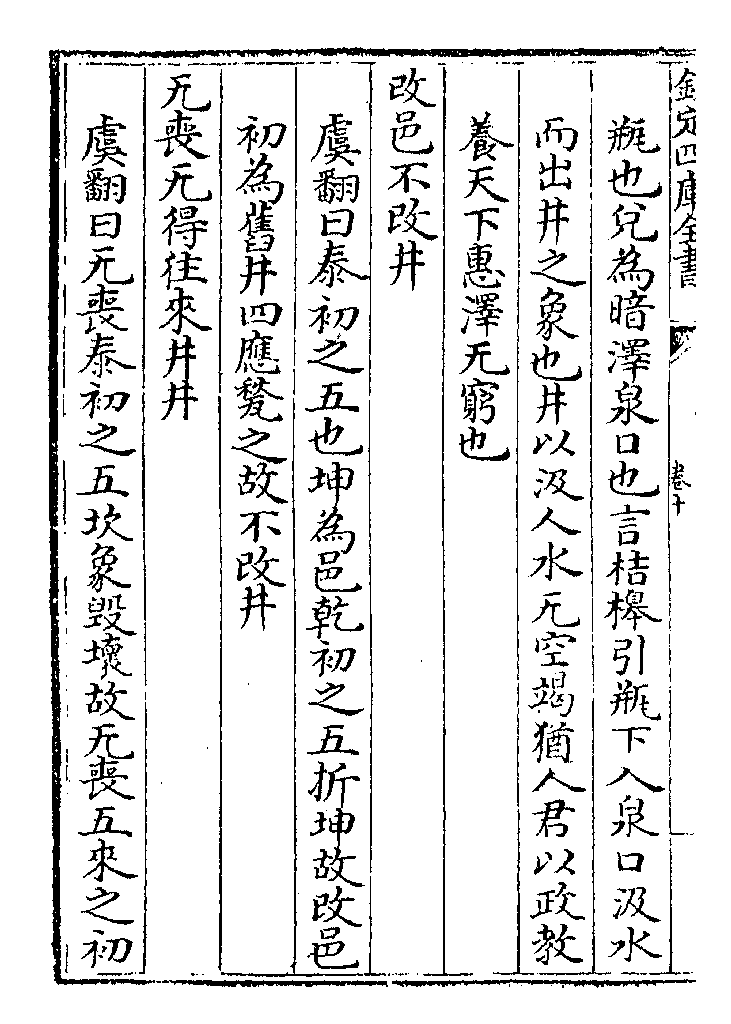 欽定四庫全書
卷十
瓶也兌為暗澤泉口也言桔槔引瓶下入泉口汲水
而出井之象也井以汲人水无空竭猶人君以政教
養天下惠澤无窮也
改邑不改井
虞翻曰泰初之五也坤為邑乾初之五折坤故改邑
初為舊井四應甃之故不改井
无喪无得往來井井
虞翻曰无喪泰初之五坎象毀壞故无喪五來之初